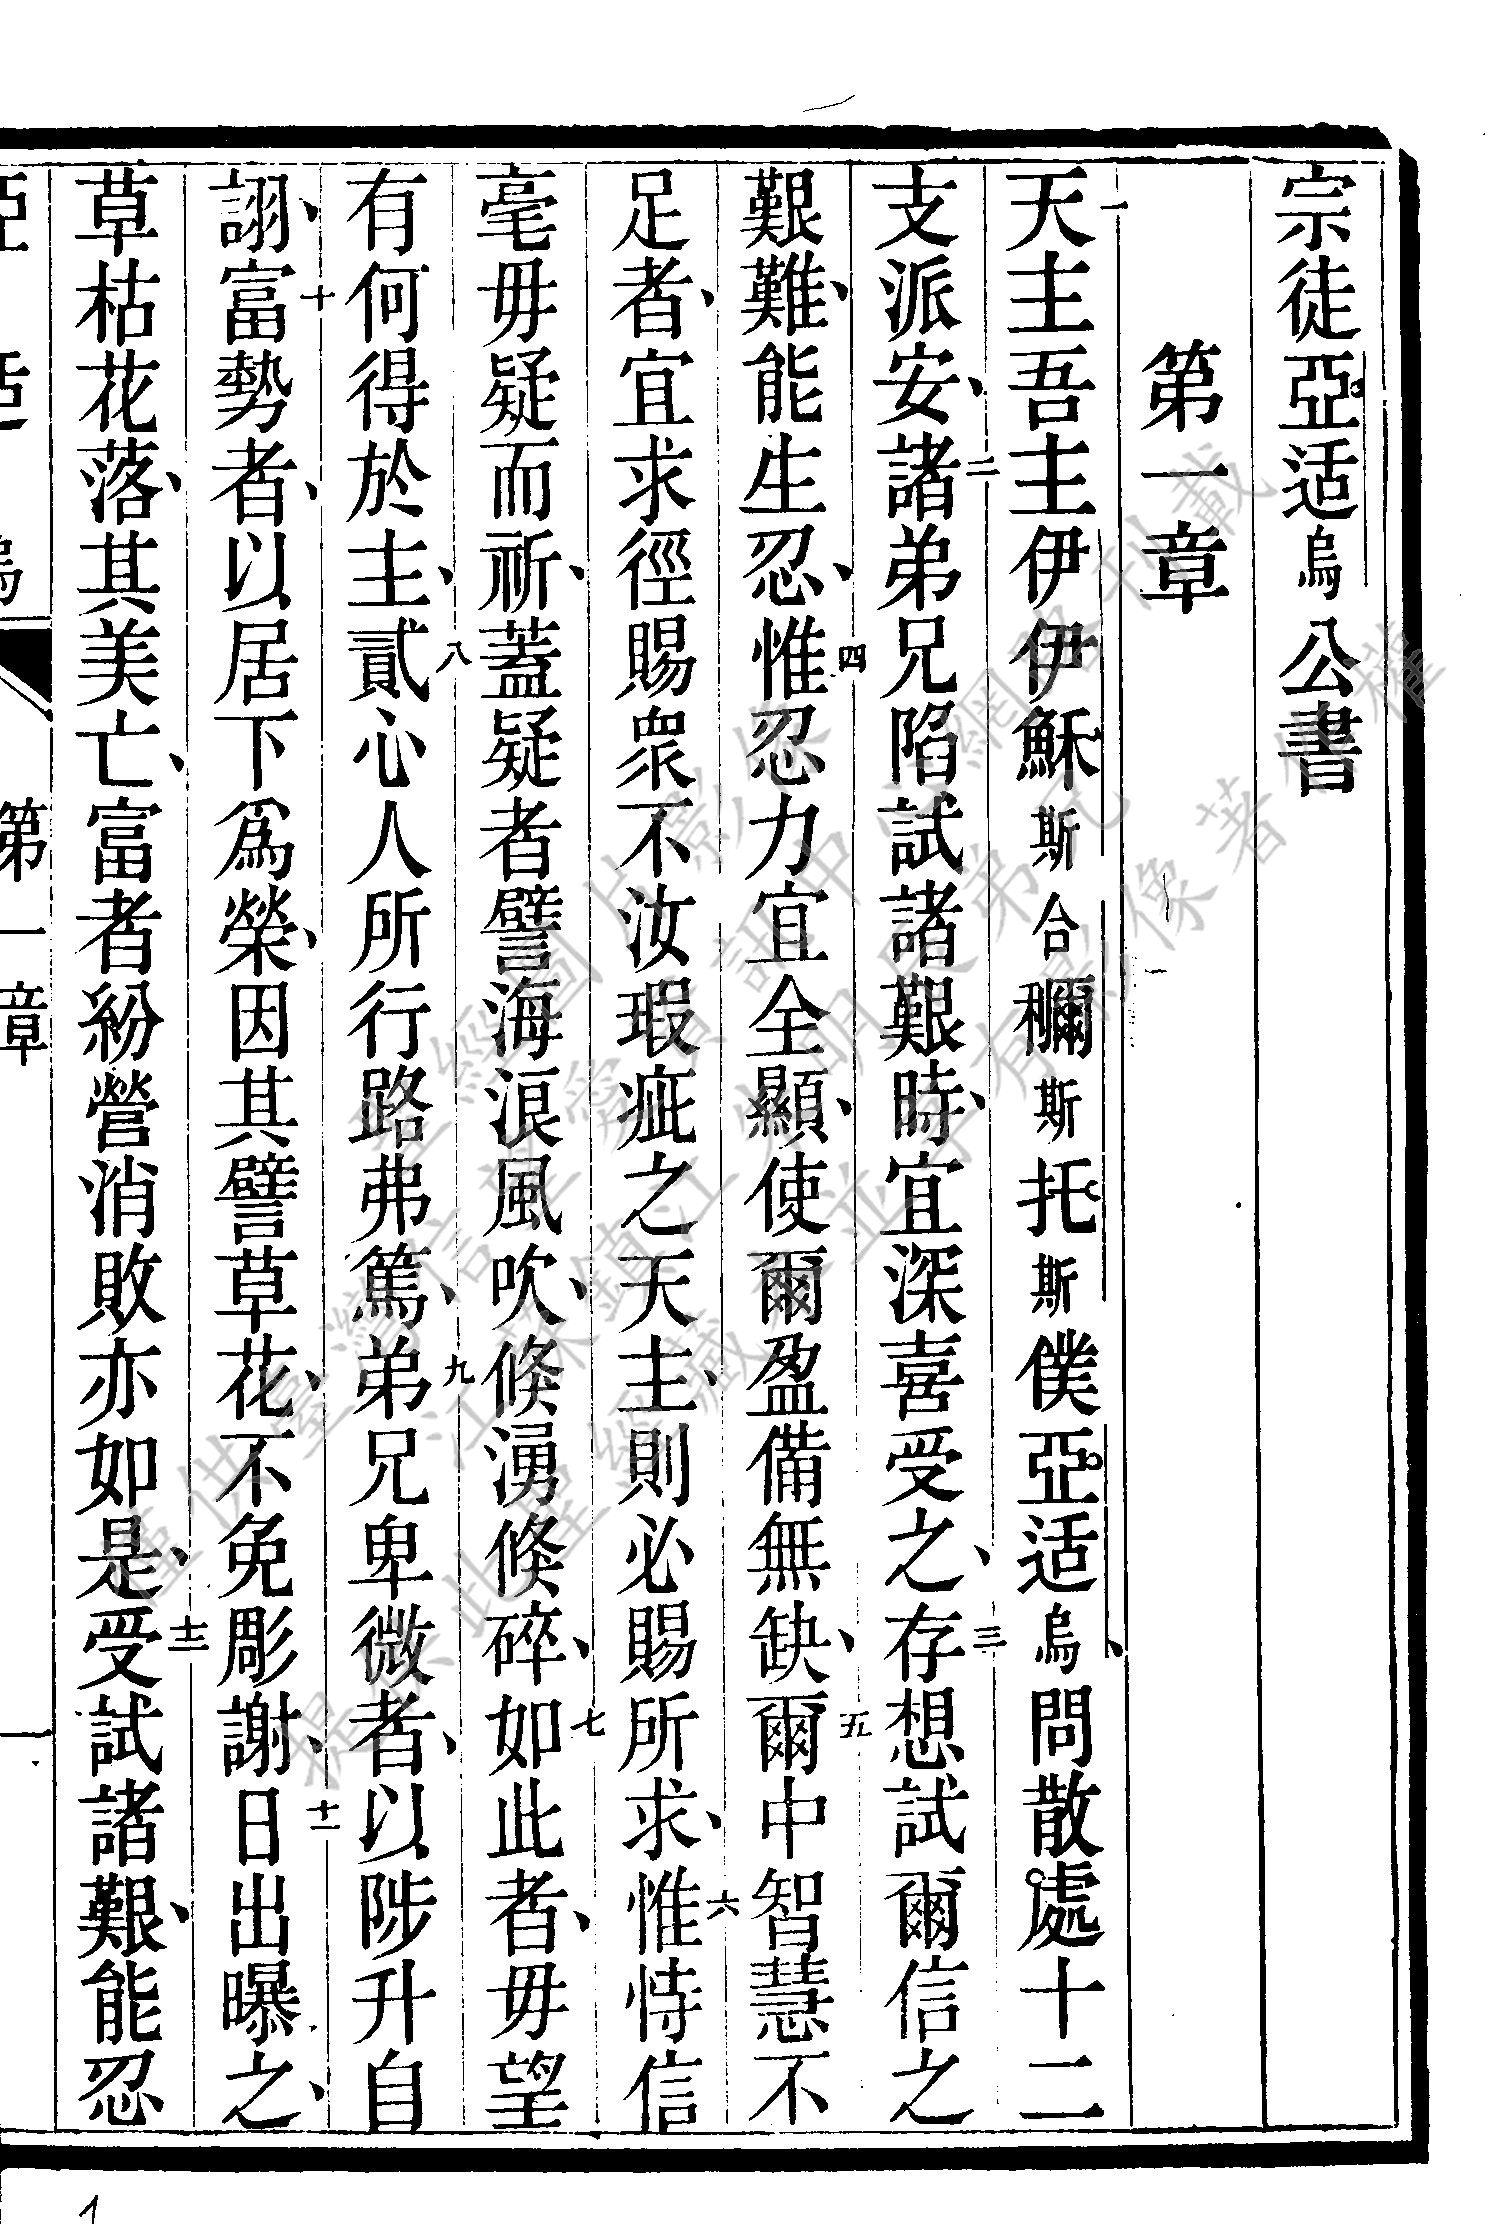 宗徒亞适烏公書
第一章
一天主吾主伊伊穌斯合彌斯托斯僕亞适烏、問散處十二
支派安、二諸弟兄陷試諸艱時、宜深喜受之、三存想試爾信之
艱難、能生忍、四惟忍力宜全顯、使爾盈備無缺、五爾中智慧不
足者、宜求徑賜衆不汝瑕疵之天主、則必賜所求、六惟恃信
毫毋疑而祈、蓋疑者譬海浪風吹、倏湧倏碎、七如此者、毋望
有何得於主、八貳心人所行路弗篤、九弟兄卑微者、以陟升自
詡、十富勢者、以居下爲榮、因其譬草花、不免彫謝、十一日出曝之、
草枯花落、其美亡、富者紛營消敗亦如是、十二受試諸艱、能忍
亞适烏 第一章 一
僅供臺灣信義會聖經圖片影像
1